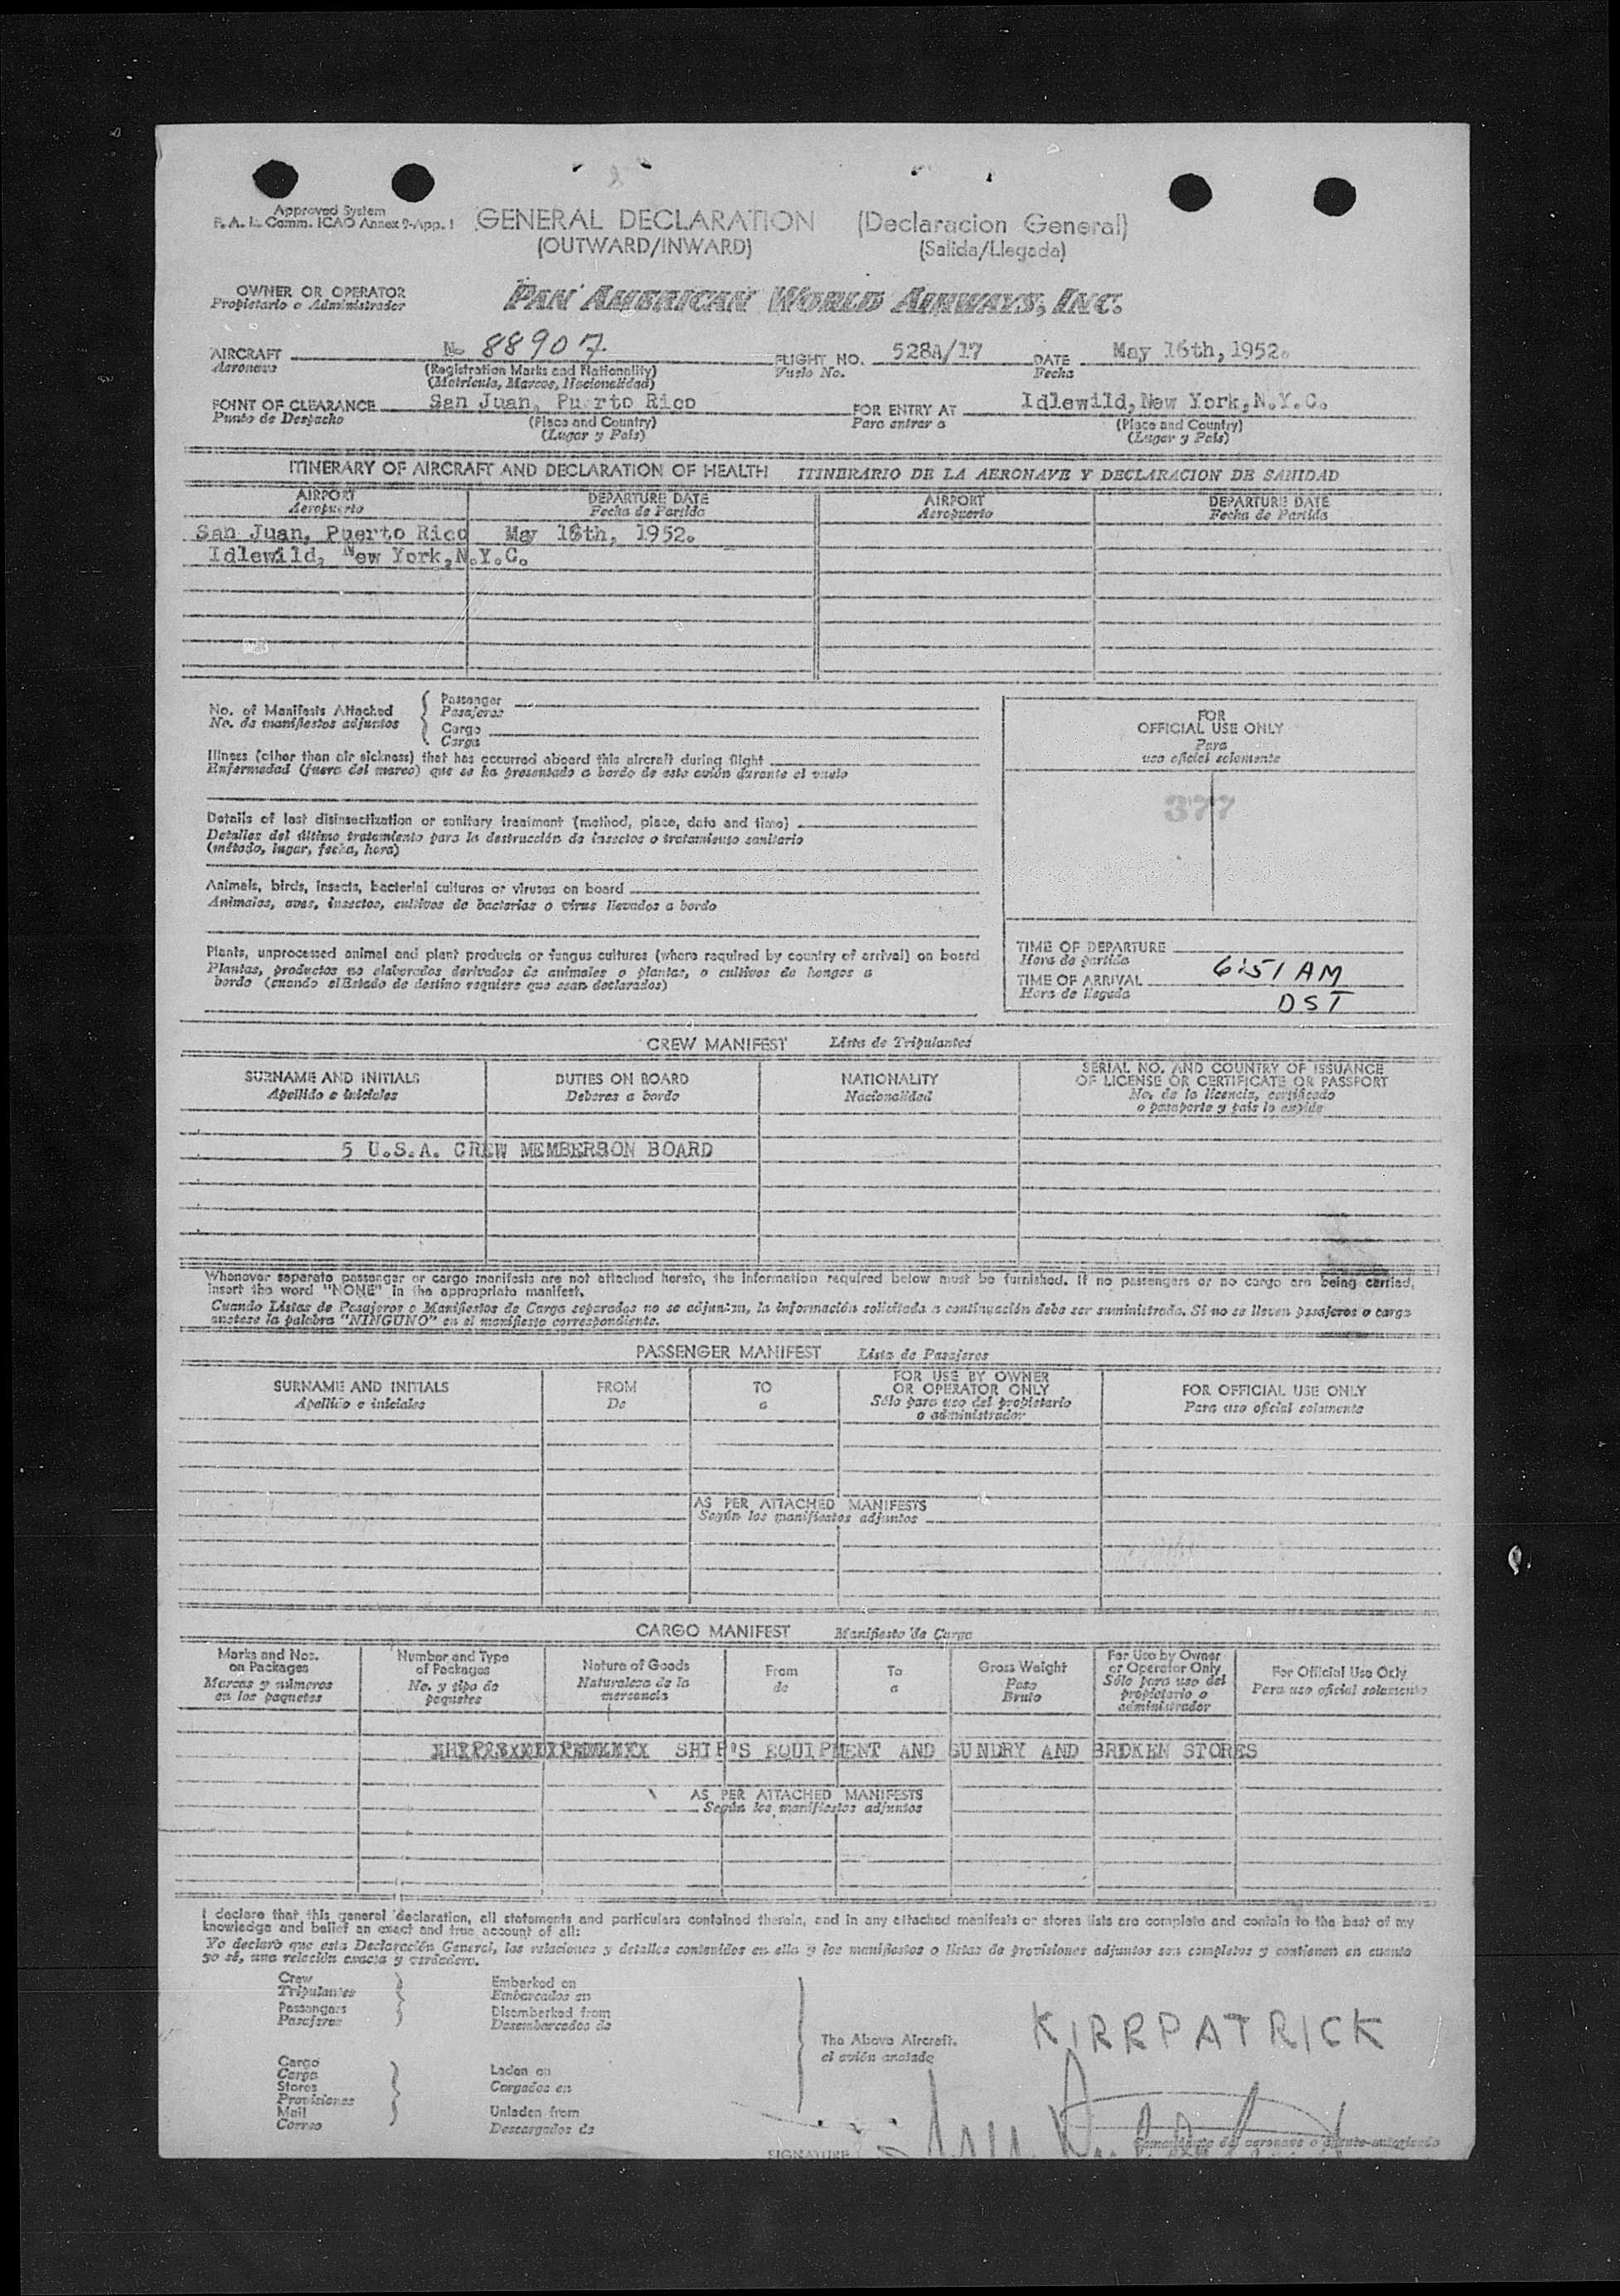 Approved System
F. A. L. Comm. ICAO Annex 9-App. 1
GENERAL DECLARATION (Declaracion General)
(OUTWARD/INWARD) (Salida/Llegada)
OWNER OR OPERATOR
Propietario o Administrador
PAN AMERICAN WORLD AIRWAYS, INC.
AIRCRAFT No 88907 FLIGHT NO. 528A/17 DATE May 16th, 1952.
Aeronave (Registration Marks and Nationality) Vuelo No. Fecha
(Matricula, Marcas, Nacionalidad)
POINT OF CLEARANCE San Juan, Puerto Rico FOR ENTRY AT Idlewild, New York, N.Y.C.
Punto de Despacho (Place and Country) Para entrar a (Place and Country)
(Lugar y País) (Lugar y País)
ITINERARY OF AIRCRAFT AND DECLARATION OF HEALTH ITINERARIO DE LA AERONAVE Y DECLARACION DE SANIDAD
AIRPORT DEPARTURE DATE AIRPORT DEPARTURE DATE
Aeropuerto Fecha de Partida Aeropuerto Fecha de Partida
San Juan, Puerto Rico May 16th, 1952.
Idlewild, New York, N.Y.C.
No. of Manifests Attached
No. de manifiestos adjuntos
Passenger
Pasajeros
Cargo
Carga
Illness (other than air sickness) that has occurred aboard this aircraft during flight
Enfermedad (fuera del mareo) que se ha presentado a bordo de este avión durante el vuelo
Details of last disinsectization or sanitary treatment (method, place, date and time)
Detalles del último tratamiento para la destrucción de insectos o tratamiento sanitario
(método, lugar, fecha, hora)
Animals, birds, insects, bacterial cultures or viruses on board
Animales, aves, insectos, cultivos de bacterias o virus llevados a bordo
Plants, unprocessed animal and plant products or fungus cultures (where required by country of arrival) on board
Plantas, productos no elaborados derivados de animales o plantas, o cultivos de hongos a
bordo (cuando el Estado de destino requiere que sean declarados)
FOR
OFFICIAL USE ONLY
Para
uso oficial solamente
377
TIME OF DEPARTURE
Hora de partida
TIME OF ARRIVAL 6:51 AM
Hora de llegada DST
CREW MANIFEST Lista de Tripulantes
SURNAME AND INITIALS DUTIES ON BOARD NATIONALITY SERIAL NO. AND COUNTRY OF ISSUANCE
OF LICENSE OR CERTIFICATE OR PASSPORT
Apellido e iniciales Deberes a bordo Nacionalidad No. de la licencia, certificado
o pasaporte y país lo expide
5 U.S.A. CREW MEMBERSON BOARD
Whenever separate passenger or cargo manifests are not attached hereto, the information required below must be furnished. If no passengers or no cargo are being carried,
insert the word "NONE" in the appropriate manifest.
Cuando Listas de Pasajeros o Manifiestos de Carga separados no se adjuntan, la información solicitada a continuación debe ser suministrada. Si no se llevan pasajeros o carga
anotese la palabra "NINGUNO" en el manifiesto correspondiente.
PASSENGER MANIFEST Lista de Pasajeros
SURNAME AND INITIALS FROM TO FOR USE BY OWNER
OR OPERATOR ONLY FOR OFFICIAL USE ONLY
Apellido e iniciales De a Sólo para uso del propietario
o administrador Para uso oficial solamente
AS PER ATTACHED MANIFESTS
Según los manifiestos adjuntos
CARGO MANIFEST Manifiesto de Carga
Marks and Nos.
on Packages
Marcas y números
en los paquetes
Number and Type
of Packages
No. y tipo de
paquetes
Nature of Goods
Naturaleza de la
mercancía
From
de
To
a
Gross Weight
Peso
Bruto
For Use by Owner
or Operator Only
Sólo para uso del
propietario o
administrador
For Official Use Only
Para uso oficial solamente
SHIP'S EQUIPMENT AND SUNDRY AND BROKEN STORES
AS PER ATTACHED MANIFESTS
Según los manifiestos adjuntos
I declare that this general declaration, all statements and particulars contained therein, and in any attached manifests or stores lists are complete and contain to the best of my
knowledge and belief an exact and true account of all:
Yo declaro que esta Declaración General, las relaciones y detalles contenidos en ella y los manifiestos o listas de provisiones adjuntos son completos y contienen en cuanto
yo sé, una relación exacta y verdadera.
Crew
Tripulantes
Passengers
Pasajeros
Embarked on
Embarcados en
Disembarked from
Desembarcados de
Cargo
Carga
Stores
Provisiones
Mail
Correo
Laden on
Cargados en
Unladen from
Descargados de
The Above Aircraft.
el avión anotado
KIRKPATRICK
SIGNATURE
Comandante de aeronave o agente autorizado